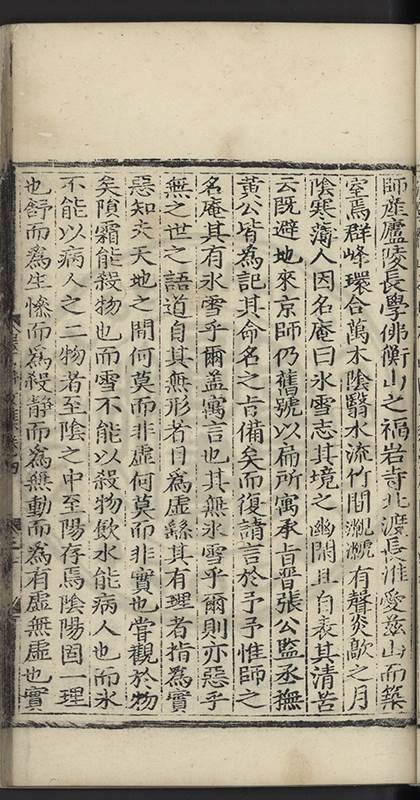 師産廬陵長學佛衡山之福岩寺北渡長淮愛茲山而築
室焉群峰環合萬木陰翳水流竹間㶁㶁有聲炎歊之月
陰寒薄人因名庵曰氷雪志其境之幽闃且自表其清苦
云既避地來京師仍舊號以扁所寓承旨晉張公監丞撫
黃公皆為記其命名之旨備矣而復請言於予予惟師之
名庵其有氷雪乎爾蓋寓言也其無氷雪乎爾則亦惡乎
無之世之語道自其無形者目為虛繇其有理者指為實
惡知夫天地之間何莫而非虛何莫而非實也嘗觀於物
矣隕霜能殺物也而雪不能以殺物飲水能病人也而氷
不能以病人之二物者至陰之中至陽存焉陰陽固一理
也舒而為生慘而為殺靜而為無動而為有虛無虛也實